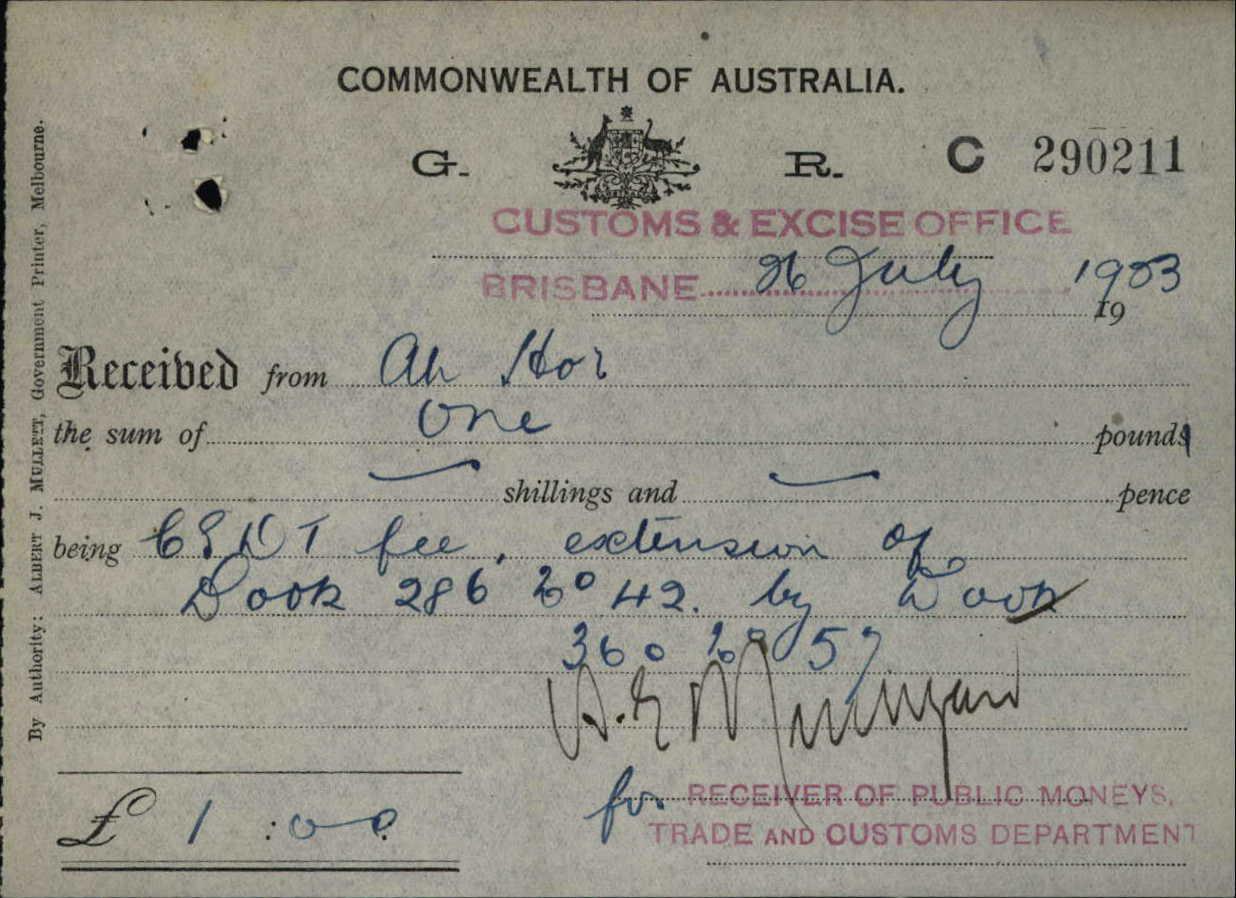 COMMONWEALTH OF AUSTRALIA.
G. R. C 290211
CUSTOMS & EXCISE OFFICE
BRISBANE 26 July 1923
19
Received from Ah Hor
the sum of One pounds
shillings and pence
being CEDT fee, extension of
Book 286 No 42. by Book
360 No 57
for RECEIVER OF PUBLIC MONEYS,
TRADE AND CUSTOMS DEPARTMENT
£ 1 : 0 0
By Authority: ALBERT J. MULLETT, Government Printer, Melbourne.